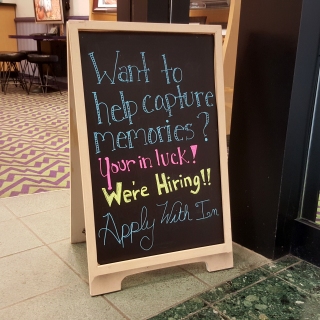 Want to
help capture
memories?
Your in luck!
We're Hiring!!
Apply With In